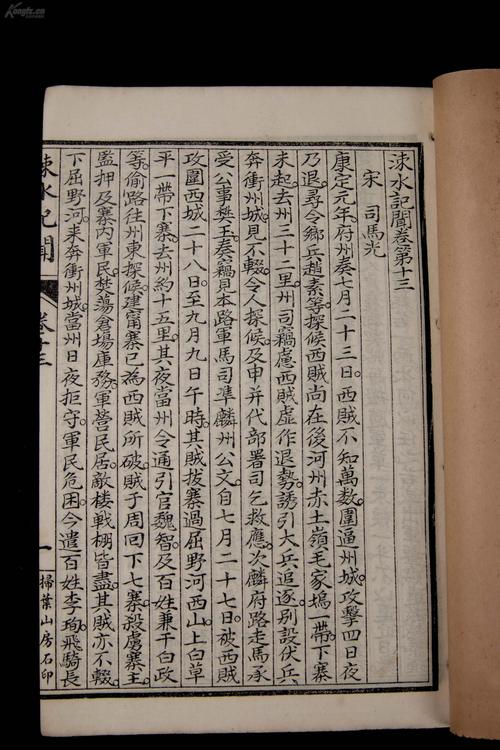 涑水記聞卷第十三
宋　司馬光
康定元年府州奏七月二十三日西賊不知萬數圍逼州城攻擊四日夜
乃退尋令鄉兵趙素等探候西賊尚在後河州赤土嶺毛家塢一帶下寨
未起去州三十二里州司竊慮西賊虛作退勢誘引大兵追逐別設伏兵
奔衝州城見不輟令人探候及申并代部署司乞救應次麟府路走馬承
受公事樊玉奏竊見本路軍馬司準麟州公文自七月二十七日被西賊
攻圍西城二十八日至九月九日午時其賊拔寨過屈野河西山上白草
平一帶下寨去州約十五里其夜當州令通引官魏智及百姓兼千白政
等偷路往州東探候建甯寨已為西賊所破賊于周回下七寨殺虜寨主
監押及寨內軍民焚蕩倉場庫務軍營民居敵樓戰棚皆盡其賊亦不輟
下屈野河來奔衝州城當州日夜拒守軍民危困今遣百姓李珣飛騎長
涑水記聞
卷十三
一
掃葉山房石印
Kongfz.cn